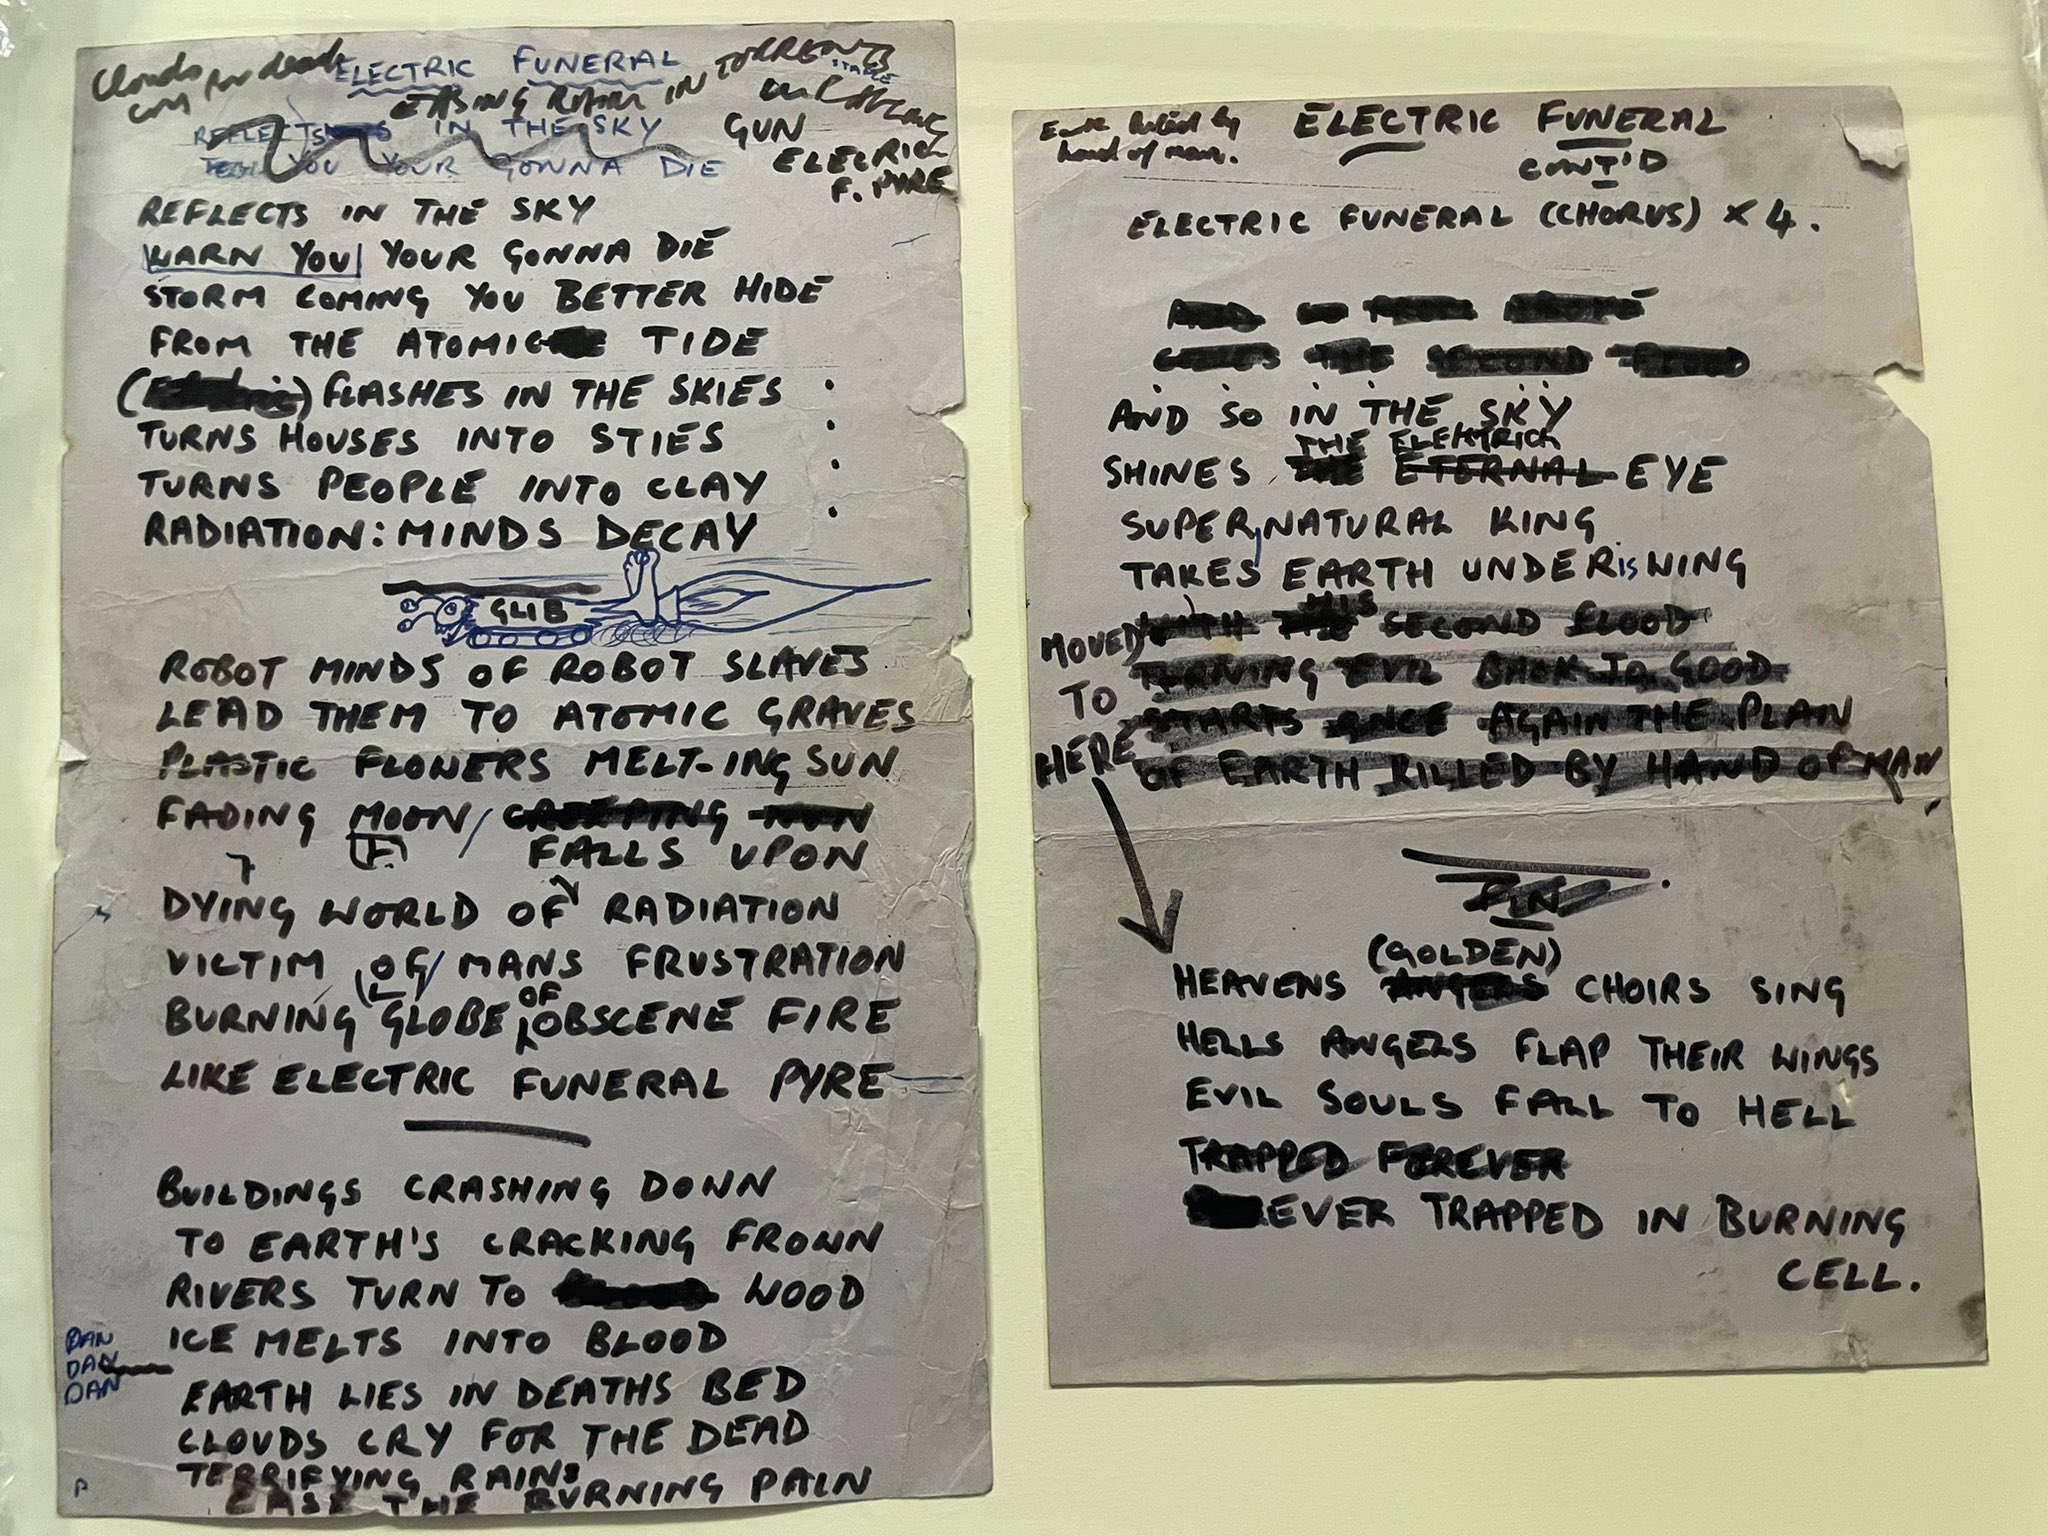 Clouds
cry for dead
ELECTRIC FUNERAL
EASING RAIN IN TORRENTS
STAPLE
GUN
ELECRICK
F. PYRE
REFLECTS IN THE SKY
YOU YOUR GONNA DIE
REFLECTS IN THE SKY
WARN YOU YOUR GONNA DIE
STORM COMING YOU BETTER HIDE
FROM THE ATOMIC TIDE
( ) FLASHES IN THE SKIES :
TURNS HOUSES INTO STIES :
TURNS PEOPLE INTO CLAY :
RADIATION: MINDS DECAY
GLIB
ROBOT MINDS OF ROBOT SLAVES
LEAD THEM TO ATOMIC GRAVES
PLASTIC FLOWERS MELT-ING SUN
FADING MOON / CREEPING NUN
FALLS UPON
DYING WORLD OF RADIATION
VICTIM OF MANS FRUSTRATION
BURNING GLOBE OF OBSCENE FIRE
LIKE ELECTRIC FUNERAL PYRE
BUILDINGS CRASHING DOWN
TO EARTH'S CRACKING FROWN
RIVERS TURN TO WOOD
ICE MELTS INTO BLOOD
DAN
DAN
DAN
EARTH LIES IN DEATHS BED
CLOUDS CRY FOR THE DEAD
TERRIFYING RAINS
EASE THE BURNING PAIN
P
Earth killed by
hand of man.
ELECTRIC FUNERAL
CONT'D
ELECTRIC FUNERAL (CHORUS) X 4.
COMES THE SECOND FLOOD
AND SO IN THE SKY
THE ELEKTRICK
SHINES THE ETERNAL EYE
SUPERNATURAL KING
TAKES EARTH UNDER is WING
WITH HIS SECOND FLOOD
TURNING EVIL BACK TO GOOD
STARTS ONCE AGAIN THE PLAN
OF EARTH KILLED BY HAND OF MAN
MOVED
TO
HERE
FIN
(GOLDEN)
HEAVENS ANGELS CHOIRS SING
HELLS ANGELS FLAP THEIR WINGS
EVIL SOULS FALL TO HELL
TRAPPED FOREVER
EVER TRAPPED IN BURNING
CELL.